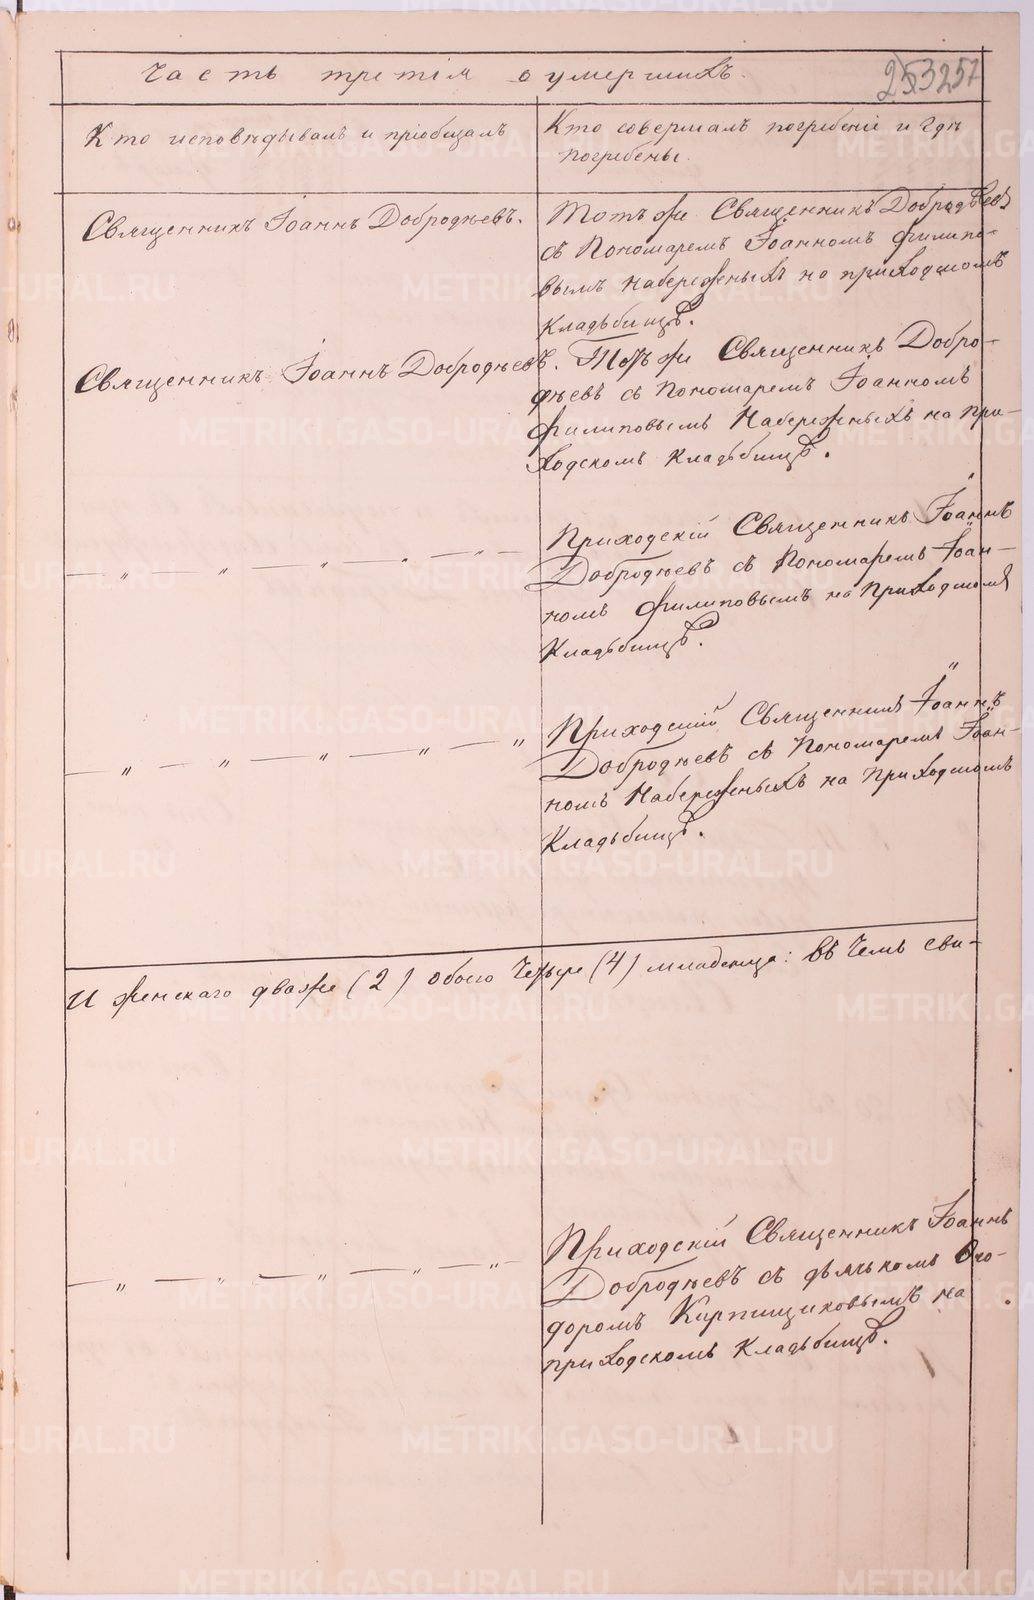 Часть третія о умершихъ.
253 257
Кто исповѣдывалъ и пріобщалъ
Кто совершалъ погребеніе и гдѣ
погребены.
Священникъ Іоаннъ Добродѣевъ.
Тотъ же Священникъ Добродѣевъ
съ Пономаремъ Іоанномъ Филипо-
вымъ Набережныхъ на приходскомъ
Кладьбищѣ.
Священникъ Іоаннъ Добродѣевъ.
Тотъ же Священникъ Добро-
дѣевъ съ Пономаремъ Іоанномъ
Филиповымъ Набережныхъ на при-
ходскомъ Кладьбищѣ.
— „ „ „ „ — „ —
Приходскій Священникъ Іоаннъ
Добродѣевъ съ Пономаремъ Іоан-
номъ Филиповымъ на Приходскомъ
Кладьбищѣ.
— „ — „ — „ — „ — „
Приходскій Священникъ Іоаннъ
Добродѣевъ съ Пономаремъ Іоан-
номъ Набережныхъ на Приходскомъ
Кладьбищѣ.
И женскаго двоже (2) обоего Четыре (4) младенца: въ Чемъ сви-
— „ — „ — „ — „ —
Приходскій Священникъ Іоаннъ
Добродѣевъ съ дьячкомъ Ѳео-
доромъ Кирпищиковымъ на
приходскомъ Кладьбищѣ.
METRIKI.GASO-URAL.RU